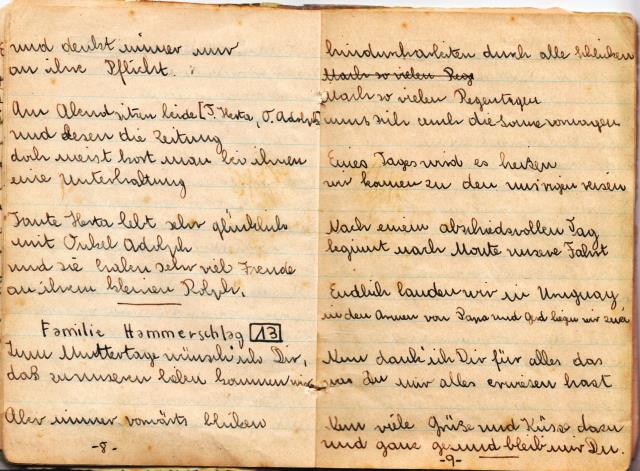 und denkst immer nur
an ihre Pflicht.
Am Abend sitzen beide [T. Herta, O. Adolph]
und lesen die Zeitung
doch meist hört man bei ihnen
eine Unterhaltung
Tante Herta lebt sehr glücklich
mit Onkel Adolph
und sie haben sehr viel Freude
an ihrem kleinen Rolph.
Familie Hammerschlag 13
Zum Muttertage wünsch ich Dir,
daß zu unseren lieben kommen wir
Aber immer vorwärts blicken
-8-
hindurcharbeiten durch alle
Nach so vielen Rege
Nach so vielen Regentagen
muss sich auch die Sonne vorwagen
Eines Tages wird es heißen
wir können zu den unsrigen reisen
Nach einem abschiedsvollen Tag
beginnt nach Monte unsere Fahrt
Endlich landen wir in Uruguay
in den Armen von Papa und Gerd liegen wir zwei
Nun dank' ich Dir für alles das
was Du mir alles erwiesen hast
Nun viele Grüße und Küsse dazu
und ganz gesund bleib mir Du.
-9-